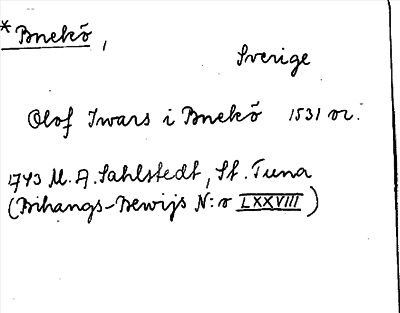 * Bnekö,
Sverige
Olof Iwars i Bnekö 1531 or.
1743 M. A. Sahlstedt, St. Tuna
(Bihangs-Bewijs N:o LXXVIII)